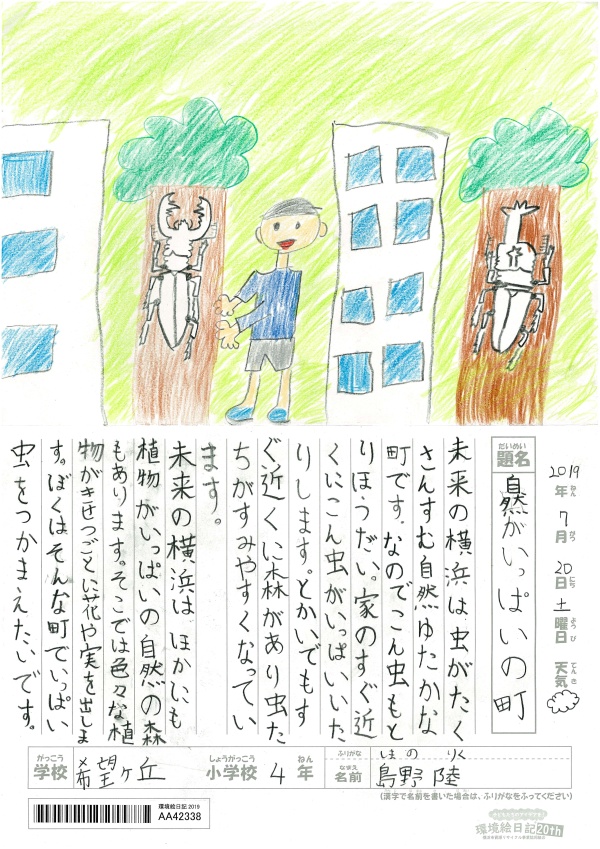 だいめい
題名
自然がいっぱいの町
2019年ねん7月がつ20日にち土曜日ようび天気てんき
未来の横浜は虫がたく
さんすむ自然ゆたかな
町です。なのでこん虫もと
りほうだい。家のすぐ近
くにこん虫がいっぱいいた
りします。とかいでもす
ぐ近くに森があり虫た
ちがすみやすくなってい
ます。
未来の横浜は、ほかにも
植物がいっぱいの自然の森
もあります。そこでは色々な植
物がきせつごとに花や実を出しま
す。ぼくはそんな町でいっぱい
虫をつかまえたいです。
がっこう
学校
希望ヶ丘
しょうがっこう
小学校
4
ねん
年
ふりがな
なまえ
名前
しまの りく
島野 陸
(漢字で名前を書いた場合は、ふりがなをふってください)
環境絵日記 2019
AA42338
環境絵日記20th